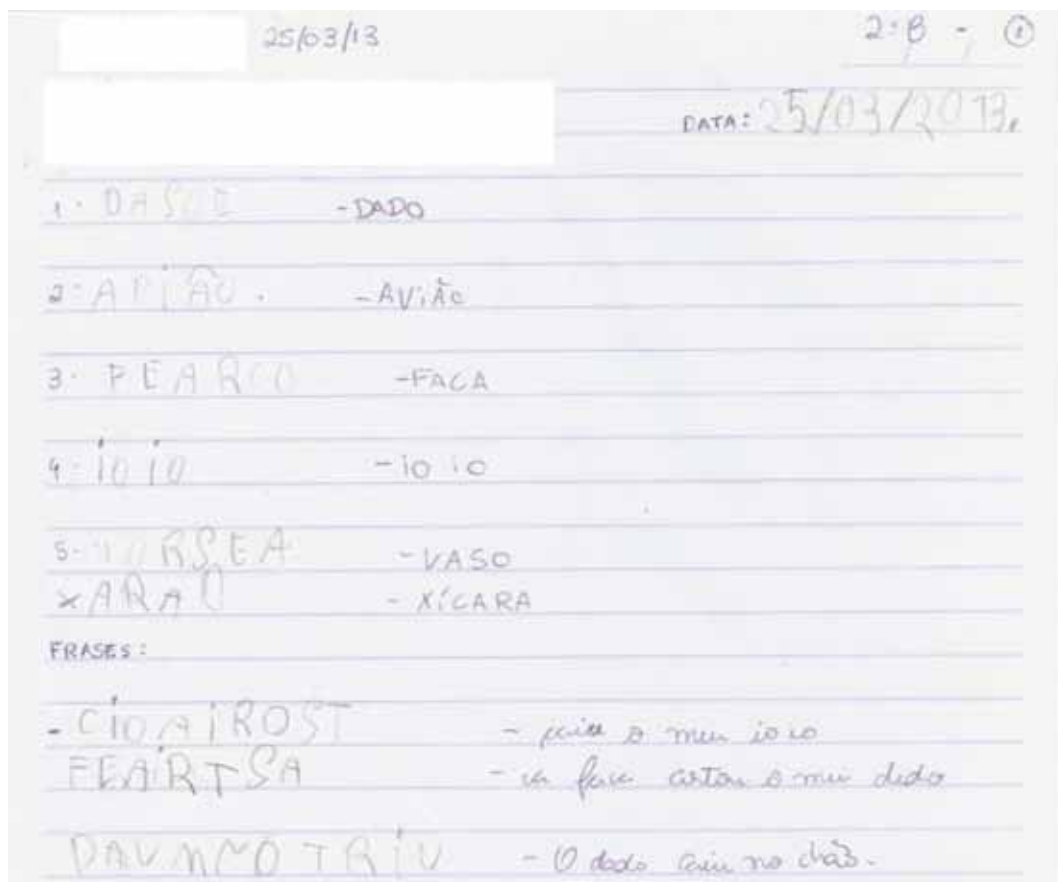 25/03/13 2:B - 1
DATA: 25/03/2013.
1. - DADO
2. APIÃO. - AVIÃO
3. FEARCO - FACA
4. ioio - io io
5. - VASO
XARAO - XÍCARA
FRASES:
- CIOAIROST - o meu ioio
FEAIRTSA - faca cortou o meu dedo
DAUMCOTRIU - O dado caiu no chão.